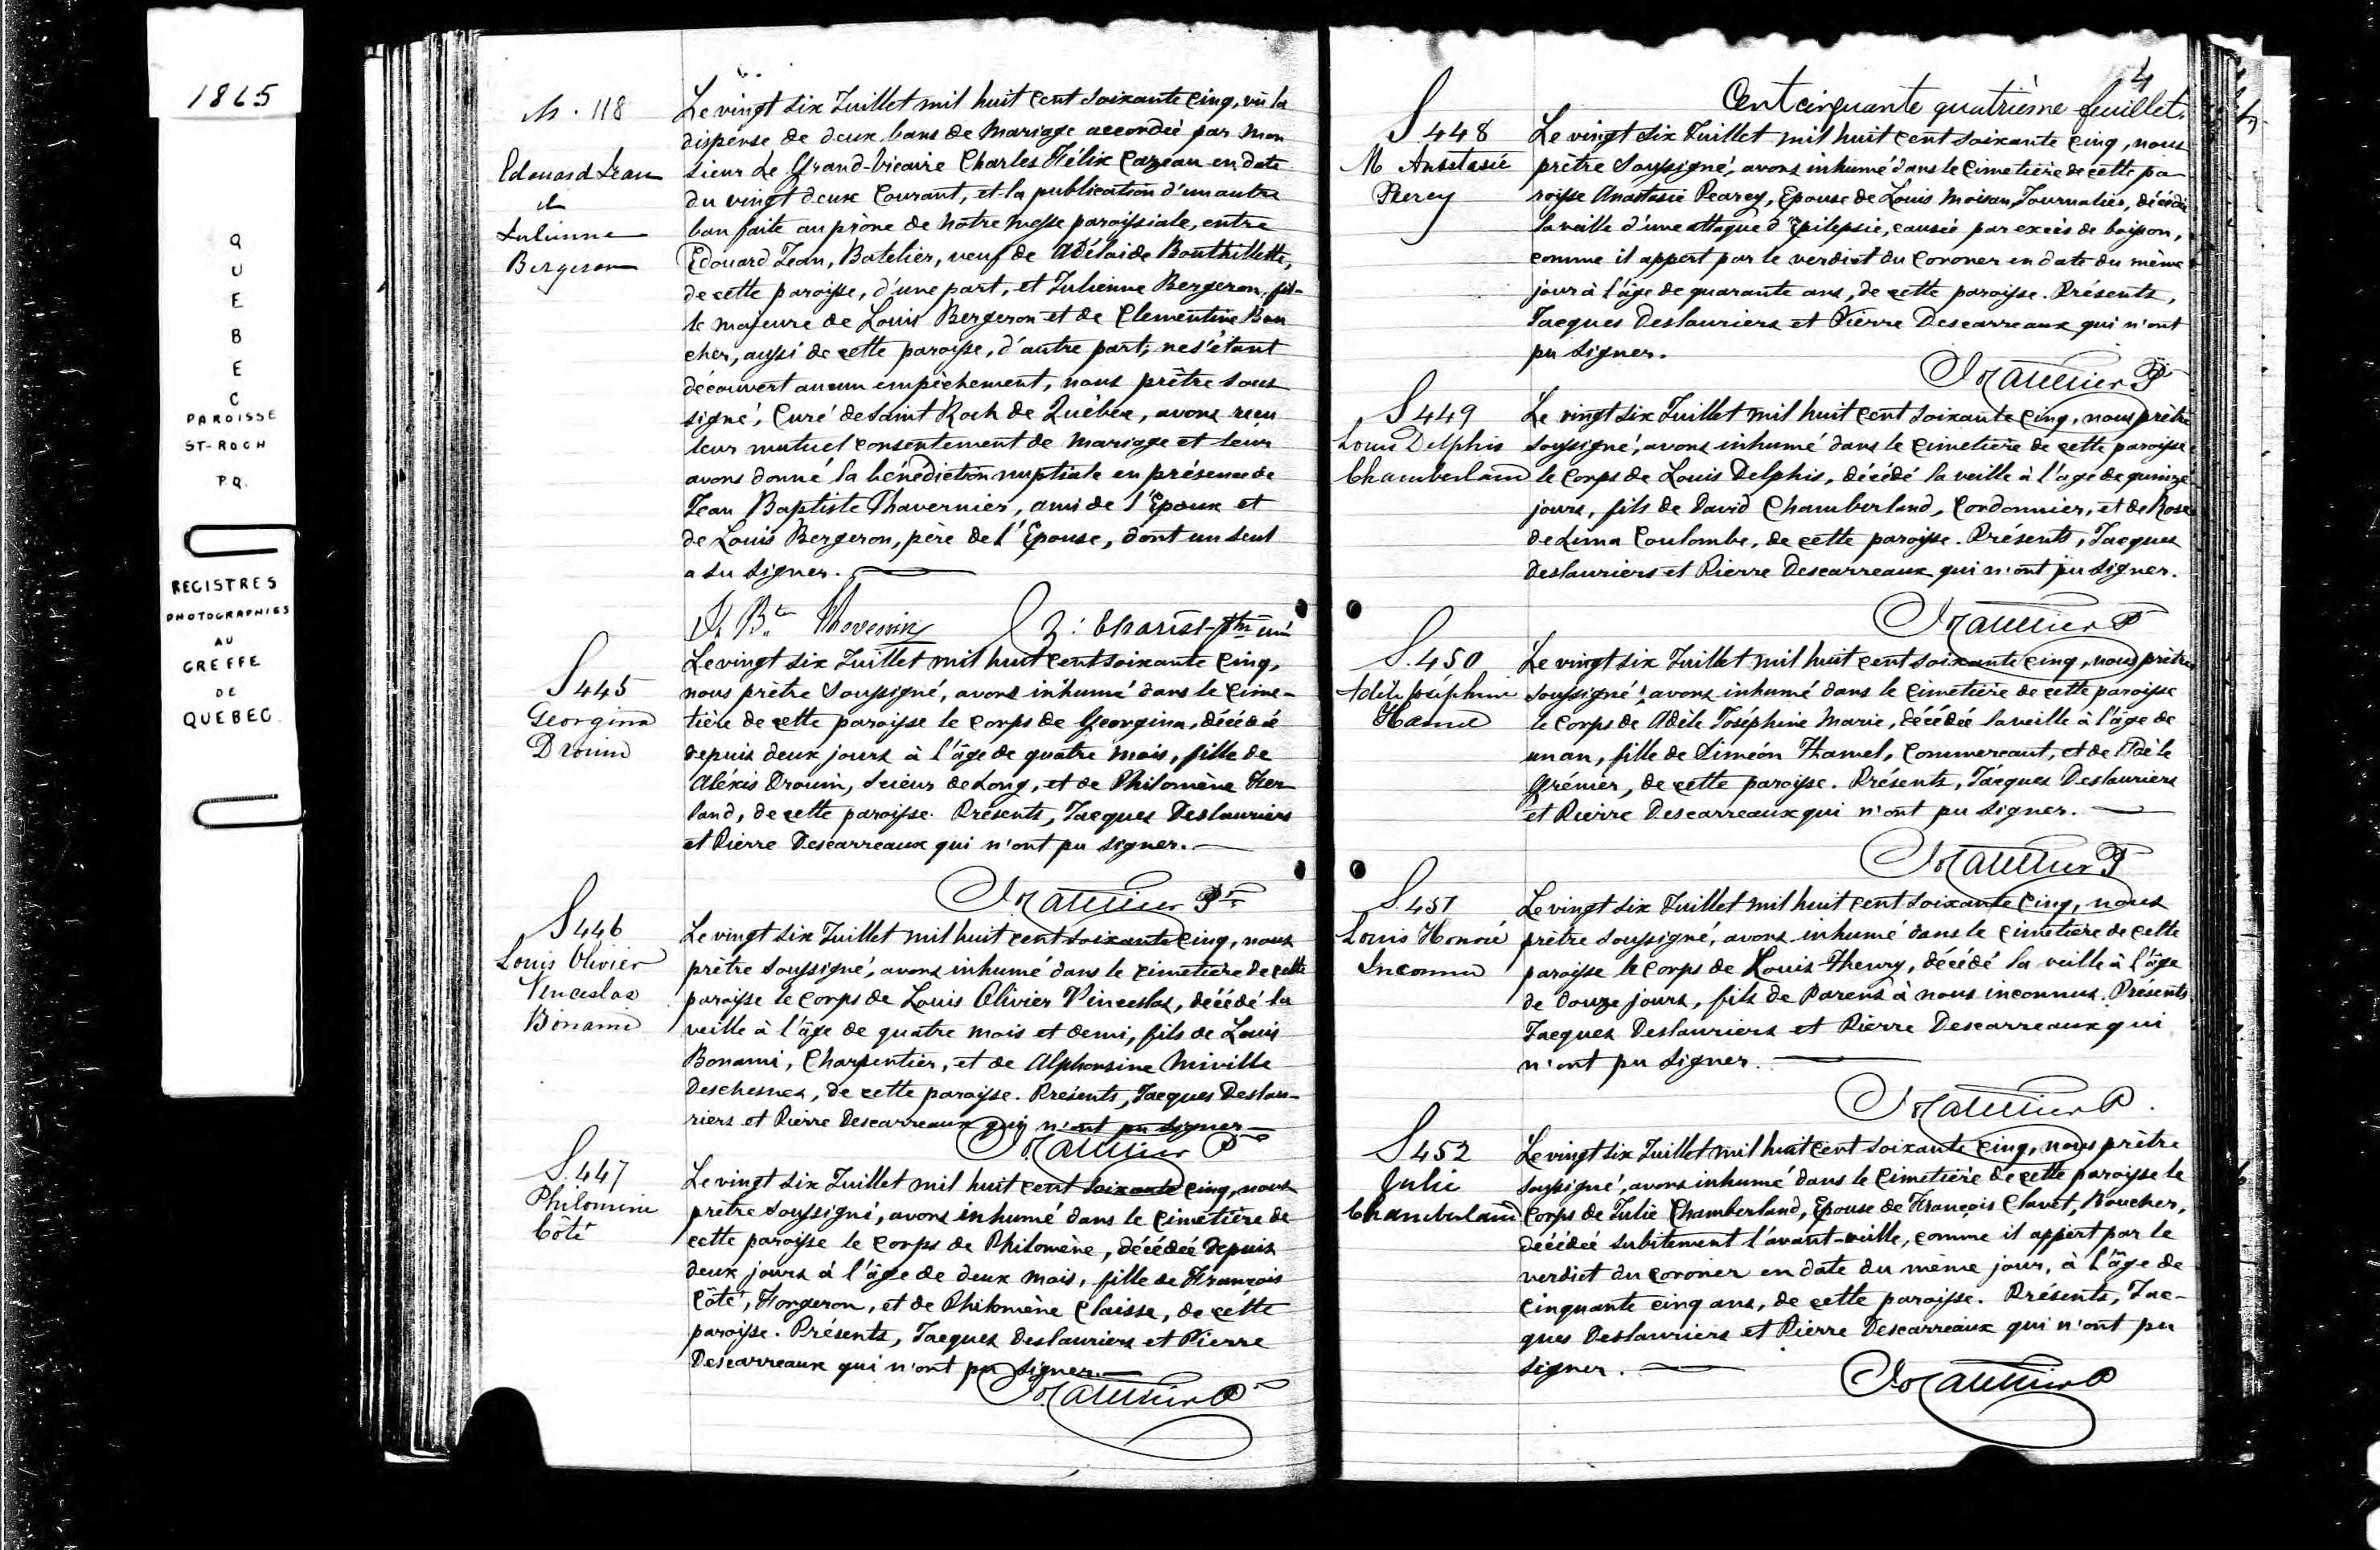 1865
QUEBEC
PAROISSE
ST-ROCH
P.Q.
REGISTRES
PHOTOGRAPHIES
AU
GREFFE
DE
QUEBEC
M. 118
Edouard Jean
&
Julienne
Bergeron
Le vingt six Juillet mil huit cent soixante cinq, vû la
dispense de deux bans de Mariage accordée par Mon
sieur Le Grand-Vicaire Charles Félix Cazeau en date
du vingt deux Courant, et la publication d'un autre
ban faite au prône de nôtre Messe paroissiale, entre
Edouard Jean, Batelier, veuf de Adélaïde Bouthillette,
de cette paroisse, d'une part, et Julienne Bergeron, fil-
le majeure de Louis Bergeron et de Clementine Bou
cher, aussi de cette paroisse, d'autre part, ne s'étant
découvert aucun empêchement, nous prêtre sous
signé, Curé de Saint Roch de Québec, avons reçu
leur mutuel consentement de Mariage et leur
avons donné la bénédiction nuptiale en présence de
Jean Baptiste Thavernier, ami de l'Epoux et
de Louis Bergeron, père de l'Epouse, dont un seul
a su signer.
J. Bte Z: Charest Ptre curé
S 445
Georgina
Drouin
Le vingt six Juillet mil huit cent soixante cinq,
nous prêtre soussigné, avons inhumé dans le cime-
tière de cette paroisse le corps de Georgina, décédée
depuis deux jours à l'âge de quatre mois, fille de
Aléxis Drouin, scieur de Long, et de Philomène Her
land, de cette paroisse. Présents, Jacques Deslauriers
et Pierre Descarreaux qui n'ont pu signer.
S 446
Louis Olivier
Venceslas
Bonami
Le vingt six Juillet mil huit cent soixante cinq, nous
prêtre soussigné, avons inhumé dans le cimetière de cette
paroisse le corps de Louis Olivier Vinceslas, décédé la
veille à l'âge de quatre mois et demi, fils de Louis
Bonami, Charpentier, et de Alphonsine Miville
Deschesnes, de cette paroisse. Présents, Jacques Deslau-
riers et Pierre Descarreaux qui n'ont pu signer
S. 447
Philomène
Côté
Le vingt six Juillet mil huit cent soixante cinq, nous
prêtre soussigné, avons inhumé dans le cimetière de
cette paroisse le corps de Philomène, décédée depuis
deux jours à l'âge de deux mois, fille de François
Côté, Forgeron, et de Philomène Claisse, de cette
paroisse. Présents, Jacques Deslauriers et Pierre
Descarreaux qui n'ont pu signer.
4
Cent cinquante quatrième feuillet.
S 448
M Anastasie
Percy
Le vingt six Juillet mil huit cent soixante cinq, nous
prêtre soussigné, avons inhumé dans le cimetière de cette pa
roisse Anastasie Pearcy, Epouse de Louis Moisan, Journalier, décédée
la veille d'une attaque d'Epilepsie, causée par excès de boisson,
comme il appert par le verdict du Coroner en date du même
jour à l'âge de quarante ans, de cette paroisse. Présents,
Jacques Deslauriers et Pierre Descarreaux qui n'ont
pu signer.
S 449
Louis Delphis
Chamberland
Le vingt six Juillet mil huit cent soixante cinq, nous prêtre
soussigné, avons inhumé dans le cimetière de cette paroisse
le corps de Louis Delphis, décédé la veille à l'âge de quinze
jours, fils de David Chamberland, Cordonnier, et de Rose
de Lima Coulombe, de cette paroisse. Présents, Jacques
Deslauriers et Pierre Descarreaux qui n'ont pu signer.
S. 450
Adèle Joséphine
Hamel
Le vingt six Juillet mil huit cent soixante cinq, nous prêtre
soussigné, avons inhumé dans le cimetière de cette paroisse
le corps de Adèle Joséphine Marie, décédée la veille à l'âge de
un an, fille de Siméon Hamel, Commerçant, et de Adèle
Grénier, de cette paroisse. Présents, Jacques Deslauriers
et Pierre Descarreaux qui n'ont pu signer.
S. 451
Louis Honoré
Inconnu
Le vingt six Juillet mil huit cent soixante cinq, nous
prêtre soussigné, avons inhumé dans le cimetière de cette
paroisse le corps de Louis Henry, décédé la veille à l'âge
de douze jours, fils de Parens à nous inconnus. Présents
Jacques Deslauriers et Pierre Descarreaux qui
n'ont pu signer.
S 452
Julie
Chamberland
Le vingt six Juillet mil huit cent soixante cinq, nous prêtre
soussigné, avons inhumé dans le Cimetière de cette paroisse le
corps de Julie Chamberland, Epouse de François Clavet, Boucher,
décédée subitement l'avant-veille, comme il appert par le
verdict du coroner en date du même jour, à l'âge de
cinquante cinq ans, de cette paroisse. Présents, Jac-
ques Deslauriers et Pierre Descarreaux qui n'ont pu
signer.